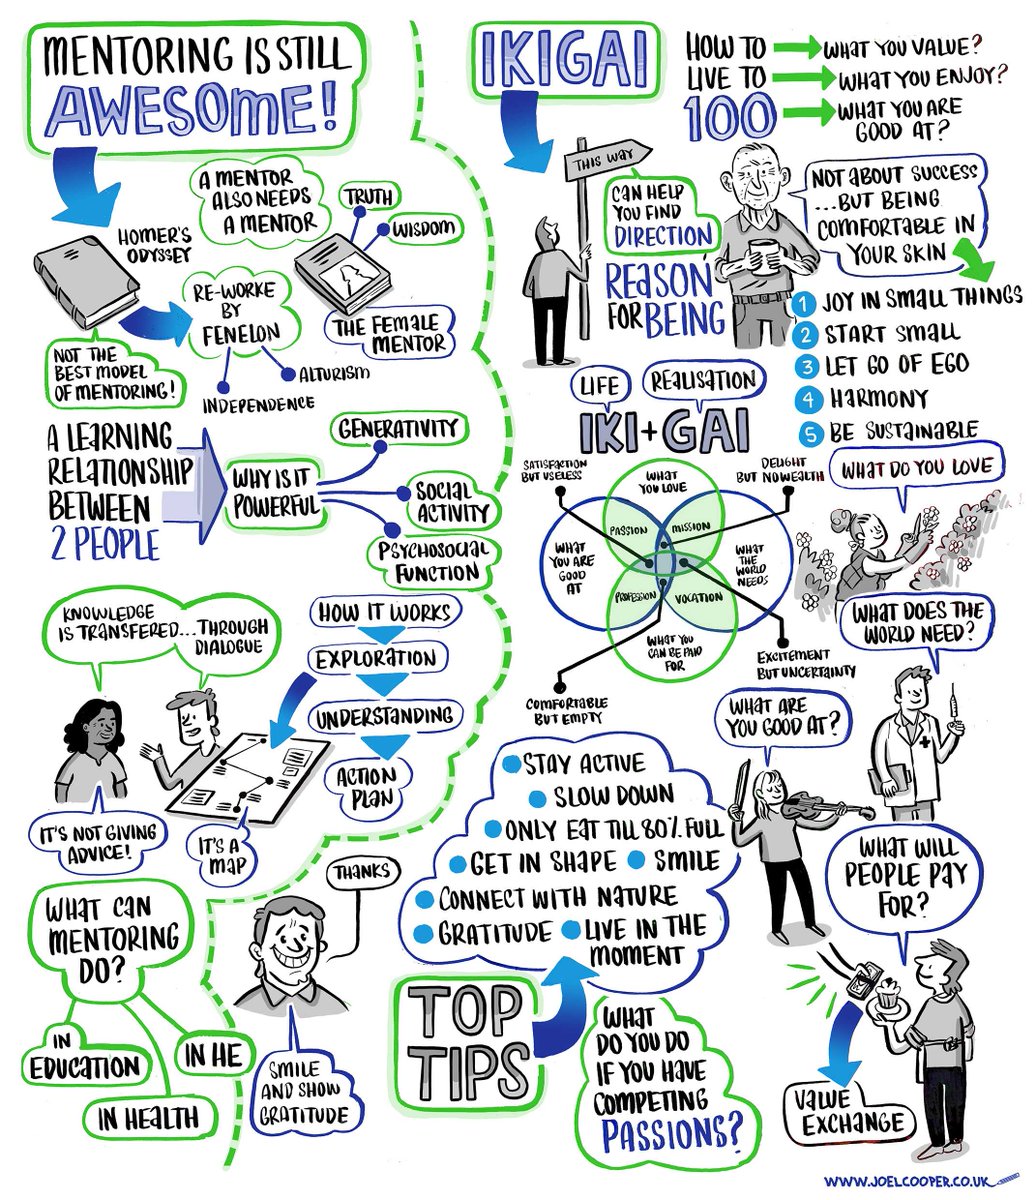 MENTORING IS STILL
AWESOME!
A MENTOR
ALSO NEEDS
A MENTOR
TRUTH
WISDOM
HOMER'S
ODYSSEY
RE-WORKE
BY
FENELON
THE FEMALE
MENTOR
NOT THE
BEST MODEL
OF MENTORING!
ALTURISM
INDEPENDENCE
A LEARNING
RELATIONSHIP
BETWEEN
2 PEOPLE
WHY IS IT
POWERFUL
GENERATIVITY
SOCIAL
ACTIVITY
PSYCHOSOCIAL
FUNCTION
KNOWLEDGE
IS TRANSFERED...THROUGH
DIALOGUE
HOW IT WORKS
EXPLORATION
UNDERSTANDING
ACTION
PLAN
IT'S NOT GIVING
ADVICE!
IT'S A
MAP
WHAT CAN
MENTORING
DO?
IN
EDUCATION
IN HE
IN HEALTH
THANKS
SMILE
AND SHOW
GRATITUDE
IKIGAI
HOW TO
LIVE TO
100
WHAT YOU VALUE?
WHAT YOU ENJOY?
WHAT YOU ARE
GOOD AT?
THIS WAY
CAN HELP
YOU FIND
DIRECTION
REASON
FOR BEING
NOT ABOUT SUCCESS
...BUT BEING
COMFORTABLE IN
YOUR SKIN
1 JOY IN SMALL THINGS
2 START SMALL
3 LET GO OF EGO
4 HARMONY
5 BE SUSTAINABLE
LIFE
REALISATION
IKI+GAI
SATISFACTION
BUT USELESS
WHAT
YOU LOVE
DELIGHT
BUT NO WEALTH
PASSION
MISSION
WHAT
YOU ARE
GOOD
AT
WHAT
THE
WORLD
NEEDS
PROFESSION
VOCATION
WHAT YOU
CAN BE PAID
FOR
COMFORTABLE
BUT EMPTY
EXCITEMENT
BUT UNCERTAINTY
WHAT DO YOU LOVE
WHAT DOES THE
WORLD NEED?
WHAT ARE
YOU GOOD AT?
WHAT WILL
PEOPLE PAY
FOR?
VALUE
EXCHANGE
STAY ACTIVE
SLOW DOWN
ONLY EAT TILL 80% FULL
GET IN SHAPE
SMILE
CONNECT WITH NATURE
GRATITUDE
LIVE IN THE
MOMENT
TOP
TIPS
WHAT
DO YOU DO
IF YOU HAVE
COMPETING
PASSIONS?
WWW.JOELCOOPER.CO.UK